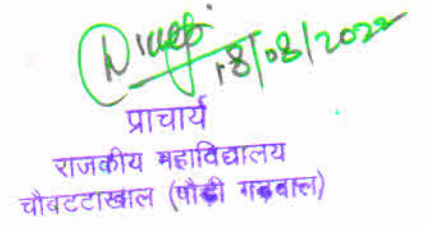 18/08/2022
प्राचार्य
राजकीय महाविद्यालय
चौबटटाखाल (पौडी गढवाल)